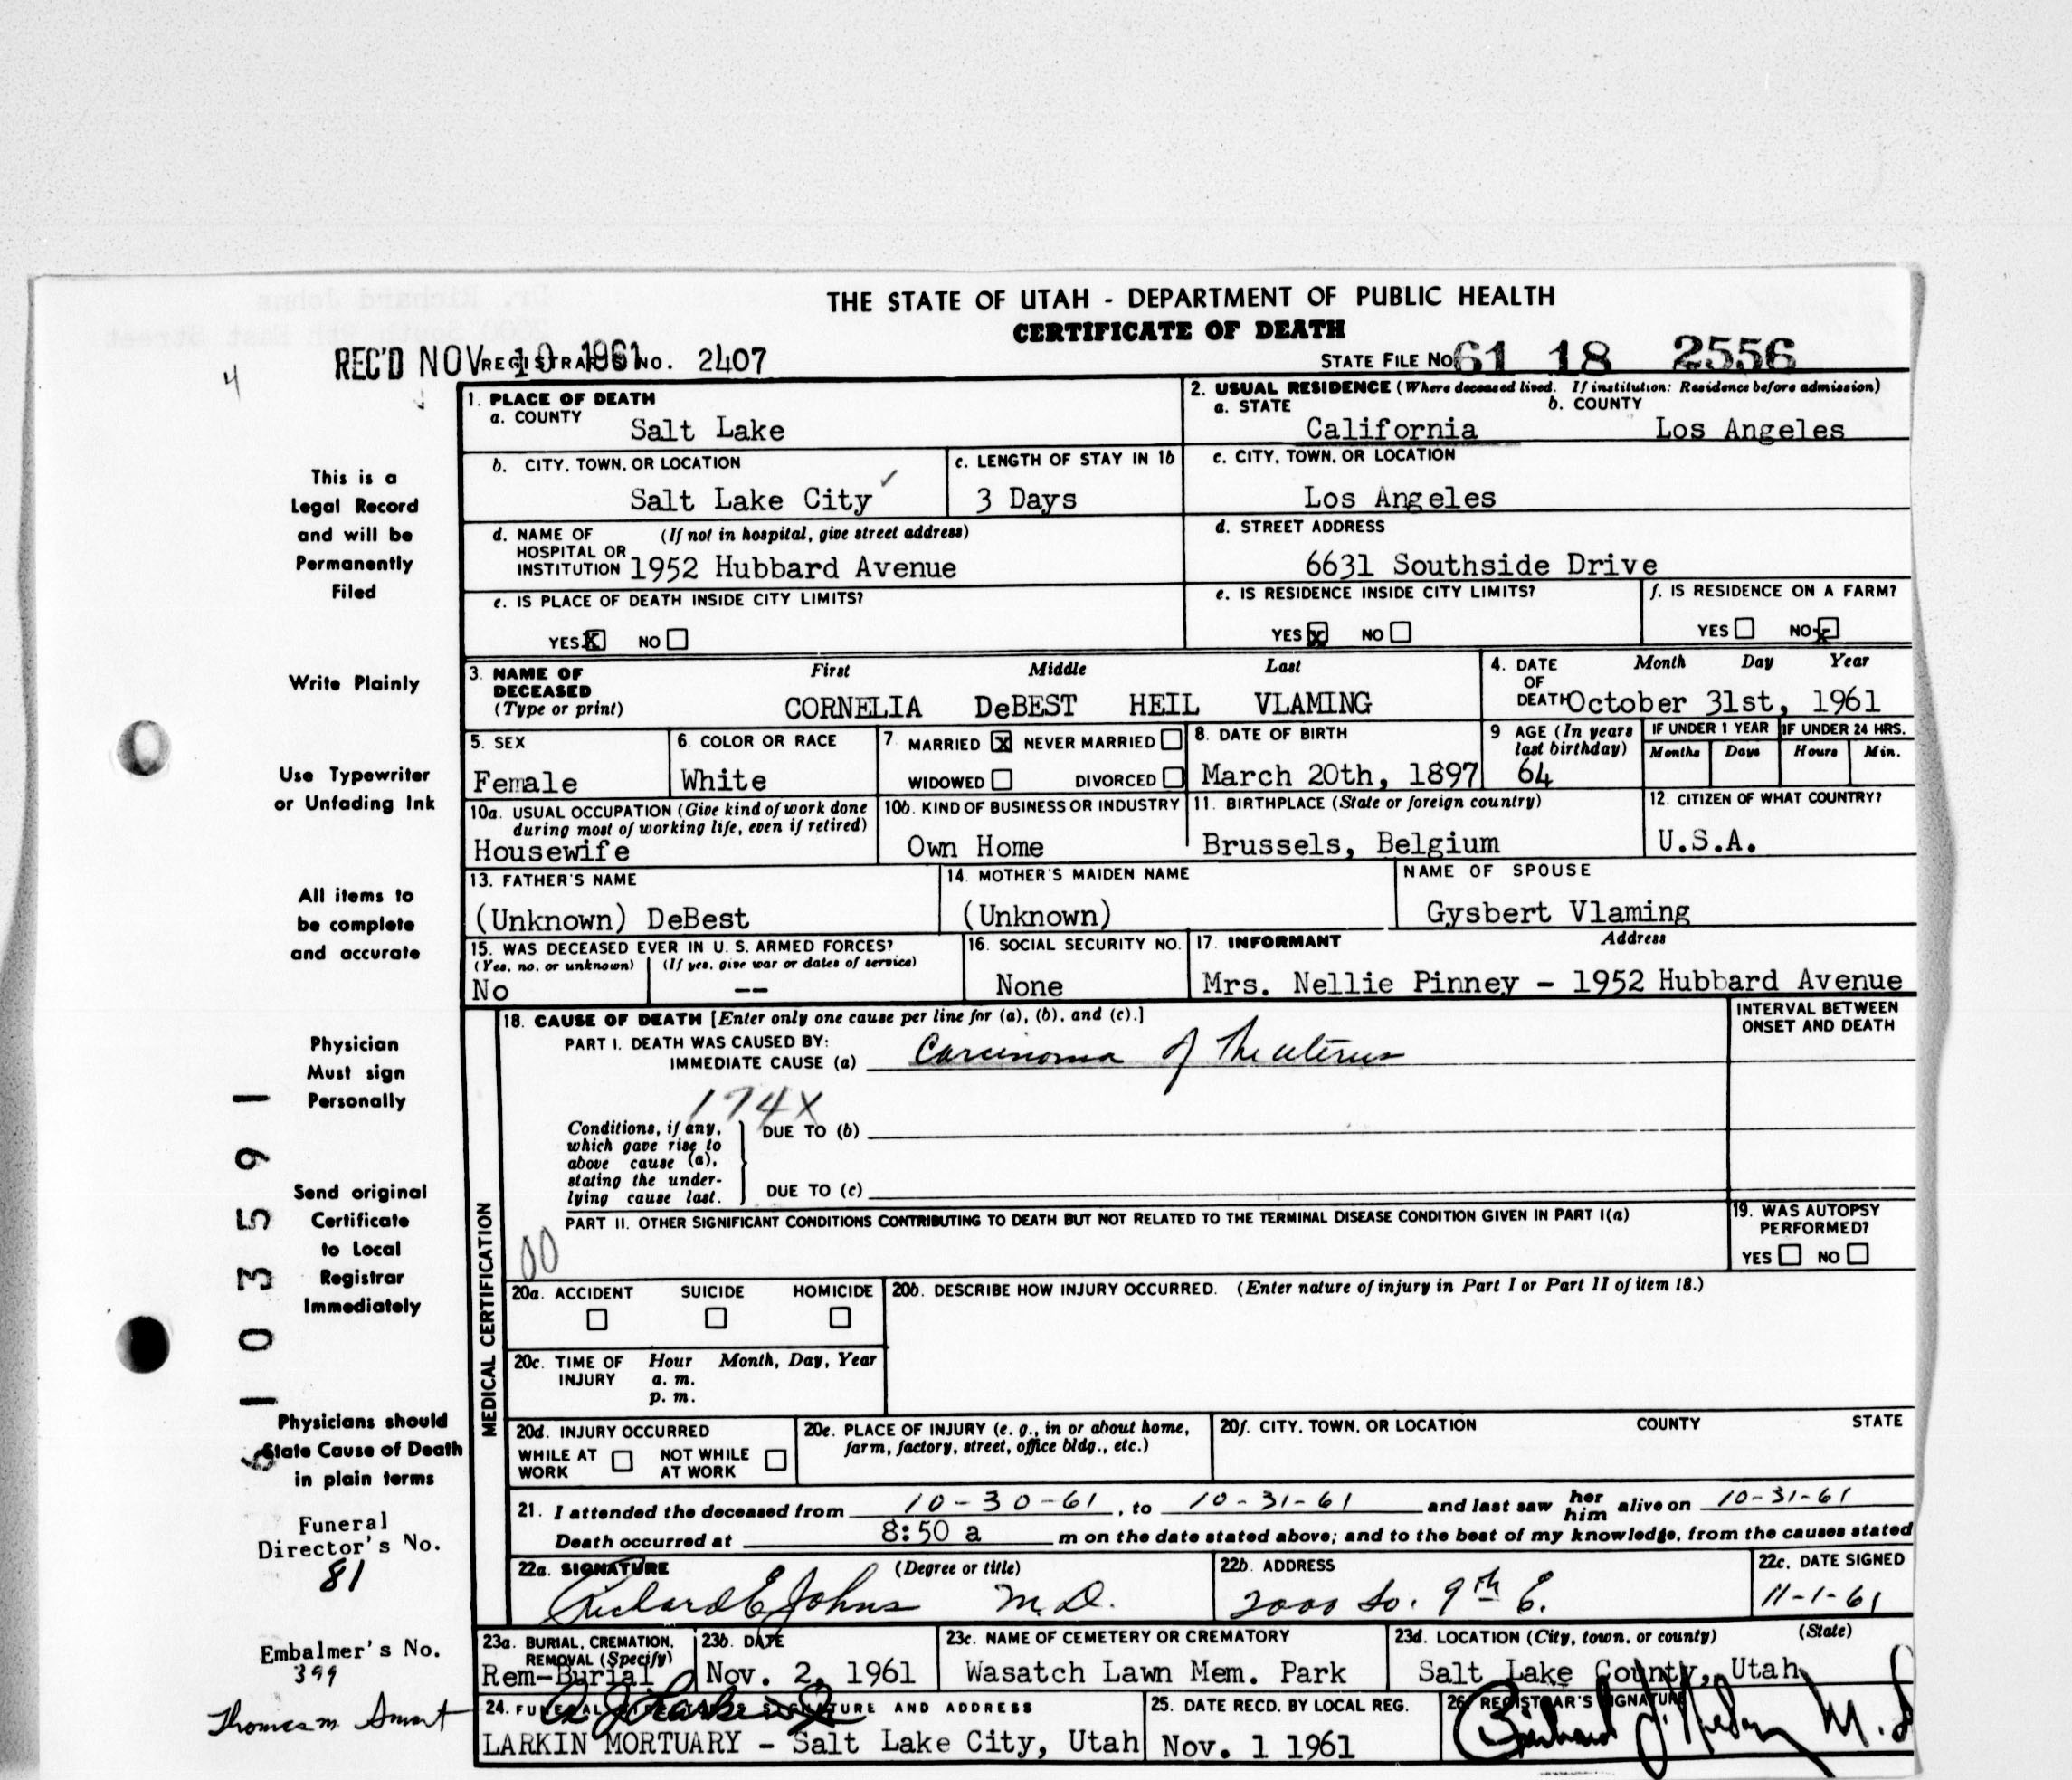 THE STATE OF UTAH - DEPARTMENT OF PUBLIC HEALTH
CERTIFICATE OF DEATH
REC'D NOV 10 1961 REGISTRAR'S NO. 2407
STATE FILE NO. 61 18 2556
4
1. PLACE OF DEATH
a. COUNTY Salt Lake
2. USUAL RESIDENCE (Where deceased lived. If institution: Residence before admission)
a. STATE California b. COUNTY Los Angeles
b. CITY, TOWN, OR LOCATION Salt Lake City ✓
c. LENGTH OF STAY IN 1b 3 Days
c. CITY, TOWN, OR LOCATION Los Angeles
d. NAME OF HOSPITAL OR INSTITUTION (If not in hospital, give street address) 1952 Hubbard Avenue
d. STREET ADDRESS 6631 Southside Drive
e. IS PLACE OF DEATH INSIDE CITY LIMITS?
YES X NO
e. IS RESIDENCE INSIDE CITY LIMITS?
YES X NO
f. IS RESIDENCE ON A FARM?
YES NO X
3. NAME OF DECEASED (Type or print)
First Middle Last
CORNELIA DeBEST HEIL VLAMING
4. DATE OF DEATH Month Day Year
October 31st, 1961
5. SEX Female
6. COLOR OR RACE White
7. MARRIED X NEVER MARRIED
WIDOWED DIVORCED
8. DATE OF BIRTH March 20th, 1897
9 AGE (In years last birthday) 64
IF UNDER 1 YEAR Months Days
IF UNDER 24 HRS. Hours Min.
10a. USUAL OCCUPATION (Give kind of work done during most of working life, even if retired)
Housewife
10b. KIND OF BUSINESS OR INDUSTRY
Own Home
11. BIRTHPLACE (State or foreign country)
Brussels, Belgium
12. CITIZEN OF WHAT COUNTRY?
U.S.A.
13. FATHER'S NAME
(Unknown) DeBest
14. MOTHER'S MAIDEN NAME
(Unknown)
NAME OF SPOUSE
Gysbert Vlaming
15. WAS DECEASED EVER IN U. S. ARMED FORCES?
(Yes, no, or unknown) (If yes, give war or dates of service)
No --
16. SOCIAL SECURITY NO.
None
17. INFORMANT Address
Mrs. Nellie Pinney - 1952 Hubbard Avenue
MEDICAL CERTIFICATION
18. CAUSE OF DEATH [Enter only one cause per line for (a), (b), and (c).]
INTERVAL BETWEEN ONSET AND DEATH
PART I. DEATH WAS CAUSED BY:
IMMEDIATE CAUSE (a) Carcinoma of the uterus
174X
Conditions, if any, which gave rise to above cause (a), stating the underlying cause last.
DUE TO (b)
DUE TO (c)
PART II. OTHER SIGNIFICANT CONDITIONS CONTRIBUTING TO DEATH BUT NOT RELATED TO THE TERMINAL DISEASE CONDITION GIVEN IN PART I(a)
00
19. WAS AUTOPSY PERFORMED?
YES NO
20a. ACCIDENT SUICIDE HOMICIDE
20b. DESCRIBE HOW INJURY OCCURRED. (Enter nature of injury in Part I or Part II of item 18.)
20c. TIME OF INJURY Hour Month, Day, Year
a. m.
p. m.
20d. INJURY OCCURRED
WHILE AT WORK NOT WHILE AT WORK
20e. PLACE OF INJURY (e. g., in or about home, farm, factory, street, office bldg., etc.)
20f. CITY, TOWN, OR LOCATION COUNTY STATE
21. I attended the deceased from 10-30-61, to 10-31-61 and last saw her him alive on 10-31-61
Death occurred at 8:50 a m on the date stated above; and to the best of my knowledge, from the causes stated
22a. SIGNATURE (Degree or title)
Richard E Johns M.D.
22b. ADDRESS
2000 So. 9th E.
22c. DATE SIGNED
11-1-61
23a. BURIAL, CREMATION, REMOVAL (Specify)
Rem-Burial
23b. DATE
Nov. 2, 1961
23c. NAME OF CEMETERY OR CREMATORY
Wasatch Lawn Mem. Park
23d. LOCATION (City, town, or county) (State)
Salt Lake County, Utah
24. FUNERAL DIRECTOR'S SIGNATURE AND ADDRESS
LARKIN MORTUARY - Salt Lake City, Utah
25. DATE RECD. BY LOCAL REG.
Nov. 1 1961
26. REGISTRAR'S SIGNATURE
M.D
This is a
Legal Record
and will be
Permanently
Filed
Write Plainly
Use Typewriter
or Unfading Ink
All items to
be complete
and accurate
Physician
Must sign
Personally
Send original
Certificate
to Local
Registrar
Immediately
Physicians should
State Cause of Death
in plain terms
6103591
Funeral
Director's No.
81
Embalmer's No.
399
Thomas M Smart
Dr. Richard Johns
2000 South 9th East Street